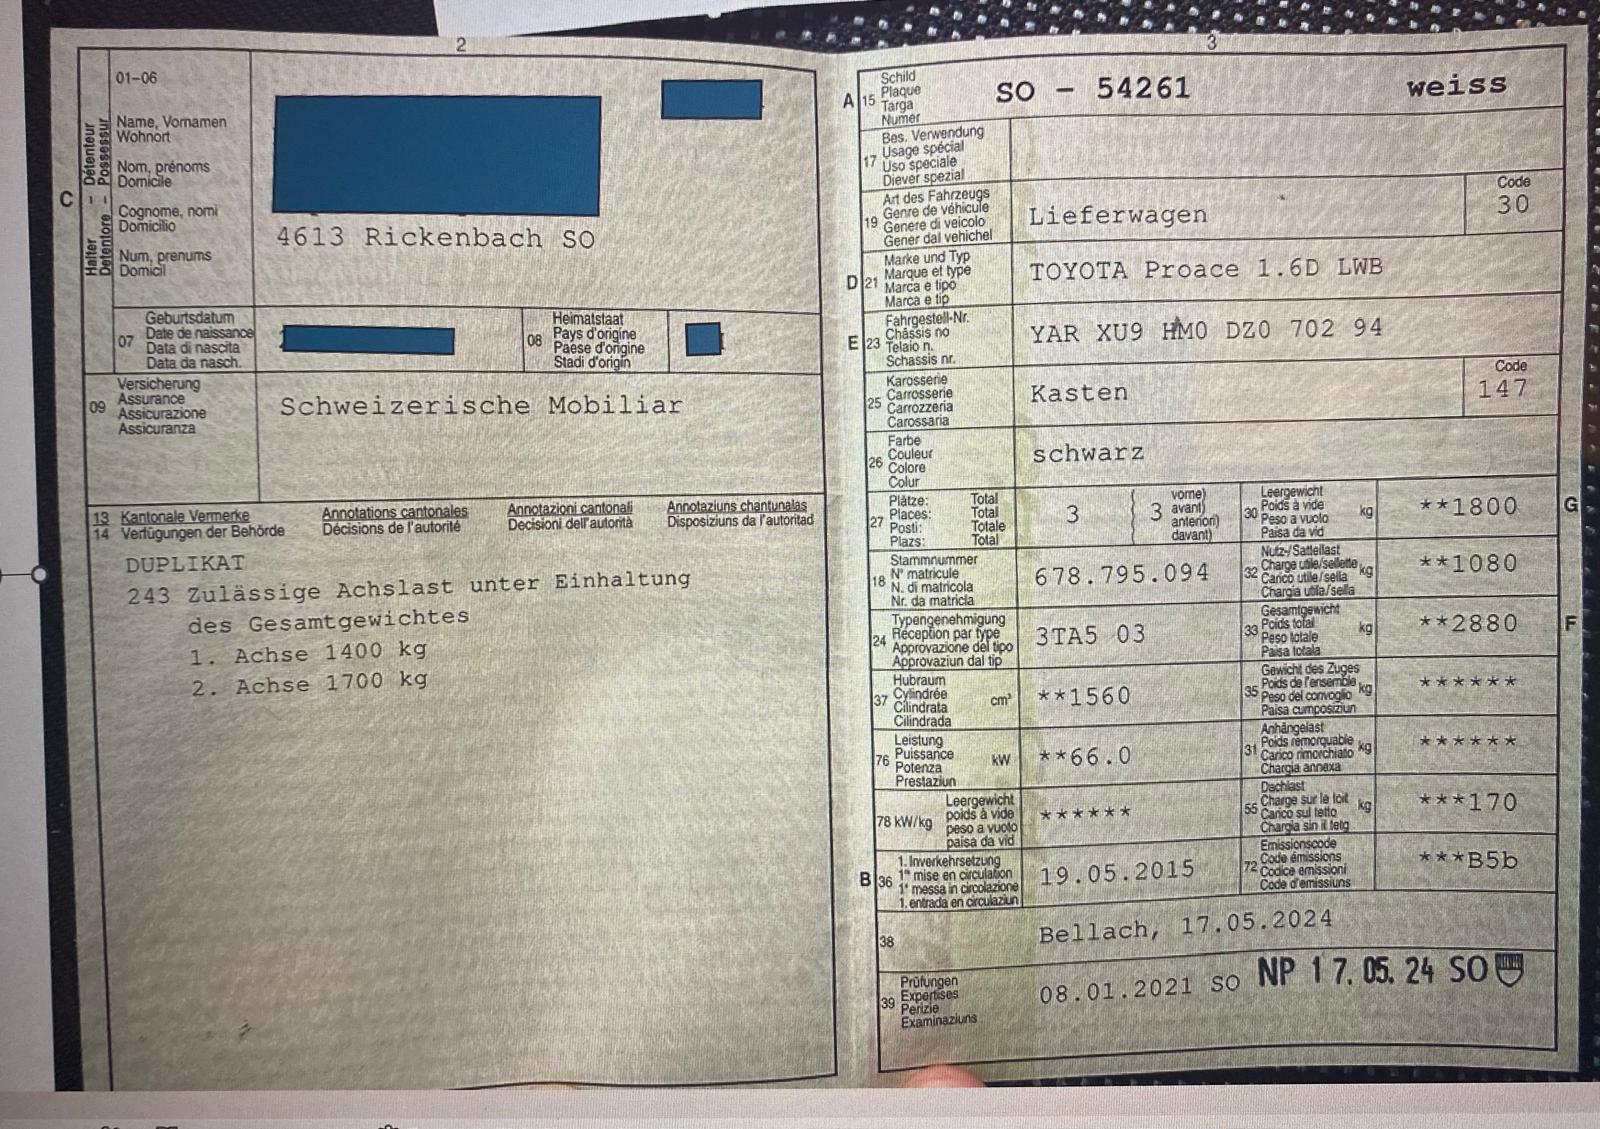 2
01-06
Name, Vornamen
Wohnort
Nom, prénoms
Domicile
Cognome, nomi
Domicilio
Num, prenums
Domicil
C
Halter – Détenteur
Detentore – Possessur
4613 Rickenbach SO
07
Geburtsdatum
Date de naissance
Data di nascita
Data da nasch.
08
Heimatstaat
Pays d'origine
Paese d'origine
Stadi d'origin
09
Versicherung
Assurance
Assicurazione
Assicuranza
Schweizerische Mobiliar
13 Kantonale Vermerke
14 Verfügungen der Behörde
Annotations cantonales
Décisions de l'autorité
Annotazioni cantonali
Decisioni dell'autorità
Annotaziuns chantunalas
Disposiziuns da l'autoritad
DUPLIKAT
243 Zulässige Achslast unter Einhaltung
des Gesamtgewichtes
1. Achse 1400 kg
2. Achse 1700 kg
3
A 15
Schild
Plaque
Targa
Numer
SO - 54261 weiss
17
Bes. Verwendung
Usage spécial
Uso speciale
Diever spezial
19
Art des Fahrzeugs
Genre de véhicule
Genere di veicolo
Gener dal vehichel
Lieferwagen
Code
30
D 21
Marke und Typ
Marque et type
Marca e tipo
Marca e tip
TOYOTA Proace 1.6D LWB
E 23
Fahrgestell-Nr.
Châssis no
Telaio n.
Schassis nr.
YAR XU9 HM0 DZ0 702 94
25
Karosserie
Carrosserie
Carrozzeria
Carossaria
Kasten
Code
147
26
Farbe
Couleur
Colore
Colur
schwarz
27
Plätze: Total
Places: Total
Posti: Totale
Plazs: Total
3
3
vorne)
avant)
anteriori)
davant)
30
Leergewicht
Poids à vide
Peso a vuoto
Paisa da vid
kg
**1800
G
18
Stammnummer
N° matricule
N. di matricola
Nr. da matricla
678.795.094
32
Nutz-/Sattellast
Charge utile/sellette
Carico utile/sella
Chargia utila/sella
kg
**1080
24
Typengenehmigung
Réception par type
Approvazione del tipo
Approvaziun dal tip
3TA5 03
33
Gesamtgewicht
Poids total
Peso totale
Paisa totala
kg
**2880
F
37
Hubraum
Cylindrée
Cilindrata
Cilindrada
cm³
**1560
35
Gewicht des Zuges
Poids de l'ensemble
Peso del convoglio
Paisa cumposiziun
kg
******
76
Leistung
Puissance
Potenza
Prestaziun
kW
**66.0
31
Anhängelast
Poids remorquable
Carico rimorchiato
Chargia annexa
kg
******
78 kW/kg
Leergewicht
poids à vide
peso a vuoto
paisa da vid
******
55
Dachlast
Charge sur le toit
Carico sul tetto
Chargia sin il tetg
kg
***170
B 36
1. Inverkehrsetzung
1re mise en circulation
1a messa in circolazione
1. entrada en circulaziun
19.05.2015
72
Emissionscode
Code émissions
Codice emissioni
Code d'emissiuns
***B5b
38
Bellach, 17.05.2024
39
Prüfungen
Expertises
Perizie
Examinaziuns
08.01.2021 SO NP 17.05.24 SO